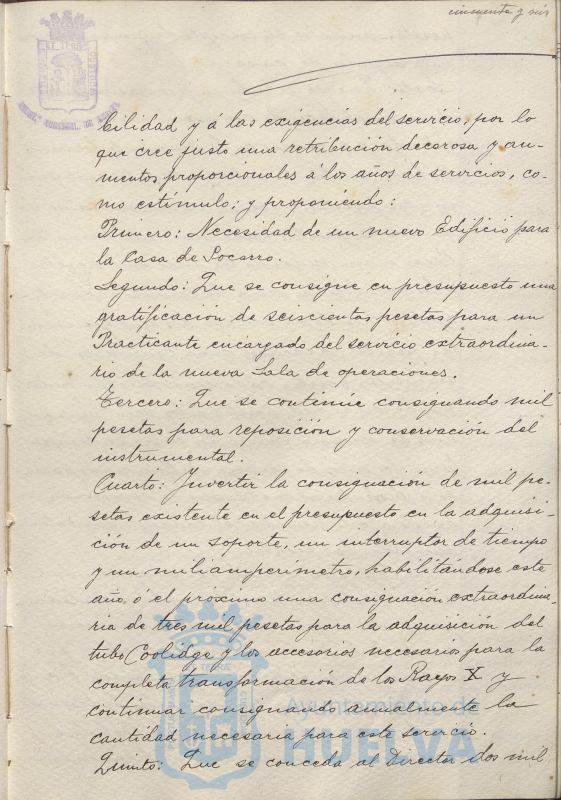 cincuenta y seis
bilidad y á las exigencias del servicio, por lo
que cree justo una retribución decorosa y au-
mentos proporcionales á los años de servicios, co-
mo estímulo; y proponiendo:
Primero: Necesidad de un nuevo Edificio para
la Casa de Socorro.
Segundo: Que se consigne en presupuesto una
gratificación de seiscientas pesetas para un
Practicante encargado del servicio extraordina-
rio de la nueva Sala de operaciones.
Tercero: Que se continúe consignando mil
pesetas para reposición y conservación del
instrumental.
Cuarto: Invertir la consignación de mil pe-
setas existente en el presupuesto en la adquisi-
ción de un soporte, un interruptor de tiempo
y un miliamperímetro, habilitándose este
año, ó el próximo una consignación extraordina-
ria de tres mil pesetas para la adquisición del
tubo Coolidge y los accesorios necesarios para la
completa transformación de los Rayos X y
continuar consignando anualmente la
cantidad necesaria para este servicio.
Quinto: Que se conceda al Director dos mil
Ayuntamiento de
HUELVA